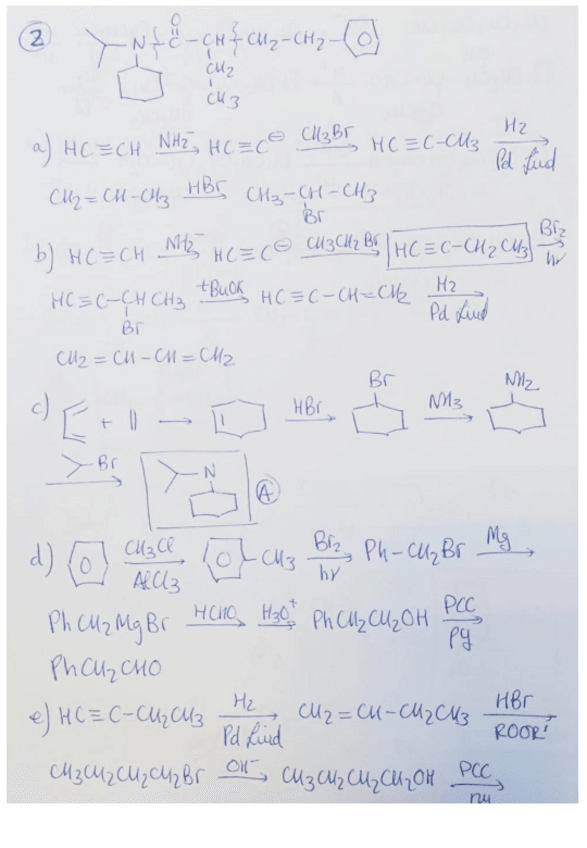 ②
O
N-C-CH-CH2-CH2-
CH2
CH3
a) HC≡CH NH2⁻ HC≡C⊖ CH3Br HC≡C-CH3 H2 Pd Lind
CH2=CH-CH3 HBr CH3-CH-CH3
Br
b) HC≡CH NH2⁻ HC≡C⊖ CH3CH2Br HC≡C-CH2CH3 Br2 hν
HC≡C-CHCH3 tBuOK HC≡C-CH=CH2 H2 Pd Lind
Br
CH2=CH-CH=CH2
c) + || → HBr Br NH3 NH2
Br N Ⓐ
d) CH3Cl AlCl3 CH3 Br2 hν Ph-CH2Br Mg
PhCH2MgBr HCHO H3O⁺ PhCH2CH2OH PCC Py
PhCH2CHO
e) HC≡C-CH2CH3 H2 Pd Lind CH2=CH-CH2CH3 HBr ROOR'
CH3CH2CH2CH2Br OH⁻ CH3CH2CH2CH2OH PCC